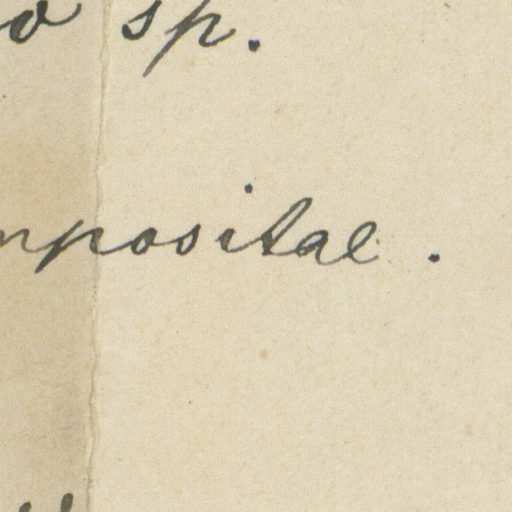 sp.
mpositae.